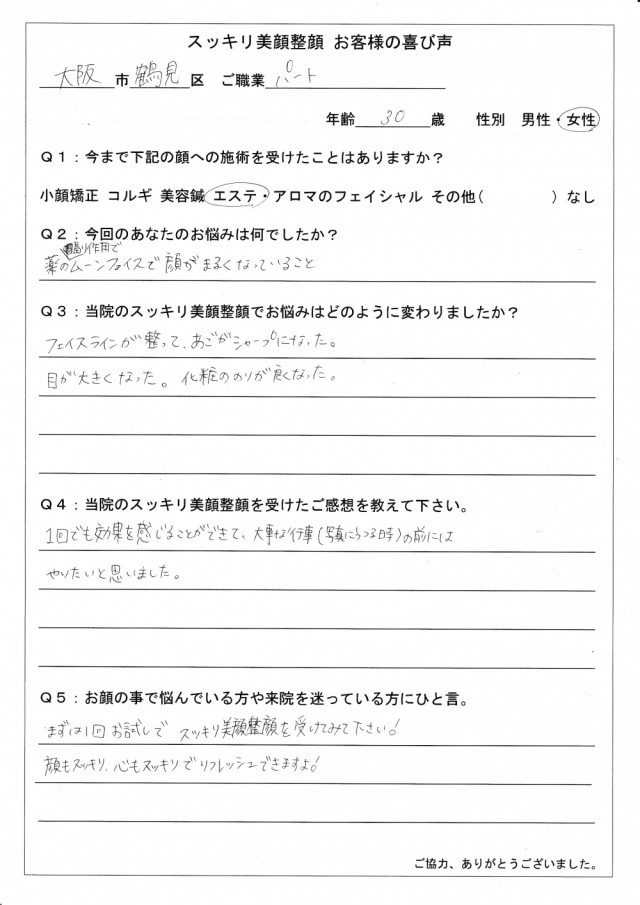 スッキリ美顔整顔 お客様の喜び声
大阪 市 鶴見 区 ご職業 パート
年齢 30 歳 性別 男性・女性
Q1：今まで下記の顔への施術を受けたことはありますか？
小顔矯正 コルギ 美容鍼 エステ・アロマのフェイシャル その他( ) なし
Q2：今回のあなたのお悩みは何でしたか？
副作用で
薬のムーンフェイスで顔がまるくなっていること
Q3：当院のスッキリ美顔整顔でお悩みはどのように変わりましたか？
フェイスラインが整って、あごがシャープになった。
目が大きくなった。化粧ののりが良くなった。
Q4：当院のスッキリ美顔整顔を受けたご感想を教えて下さい。
1回でも効果を感じることができて、大事な行事(写真にうつる時)の前には
やりたいと思いました。
Q5：お顔の事で悩んでいる方や来院を迷っている方にひと言。
まずは1回お試しで スッキリ美顔整顔を受けてみて下さい！
顔もスッキリ、心もスッキリでリフレッシュできますよ！
ご協力、ありがとうございました。